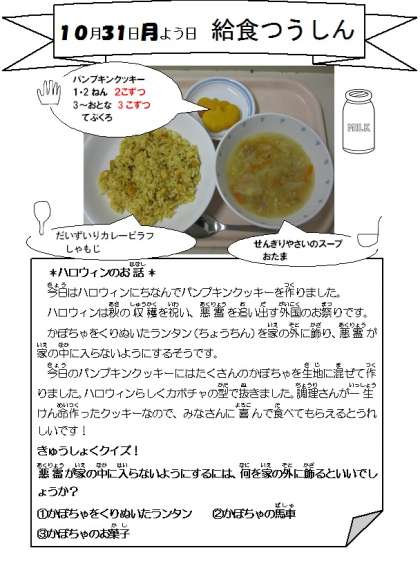 10月31日月よう日 給食つうしん
パンプキンクッキー
1・2ねん 2こずつ
3～おとな 3こずつ
てぶくろ
MILK
だいずいりカレーピラフ
しゃもじ
せんぎりやさいのスープ
おたま
＊ハロウィンのお話＊
今日はハロウィンにちなんでパンプキンクッキーを作りました。
ハロウィンは秋の収穫を祝い、悪霊を追い出す外国のお祭りです。
かぼちゃをくりぬいたランタン（ちょうちん）を家の外に飾り、悪霊が
家の中に入らないようにするそうです。
今日のパンプキンクッキーにはたくさんのかぼちゃを生地に混ぜて作
りました。ハロウィンらしくカボチャの型で抜きました。調理さんが一生
けん命作ったクッキーなので、みなさんに喜んで食べてもらえるとうれ
しいです！
きゅうしょくクイズ！
悪霊が家の中に入らないようにするには、何を家の外に飾るといいでし
ょうか？
①かぼちゃをくりぬいたランタン ②かぼちゃの馬車
③かぼちゃのお菓子